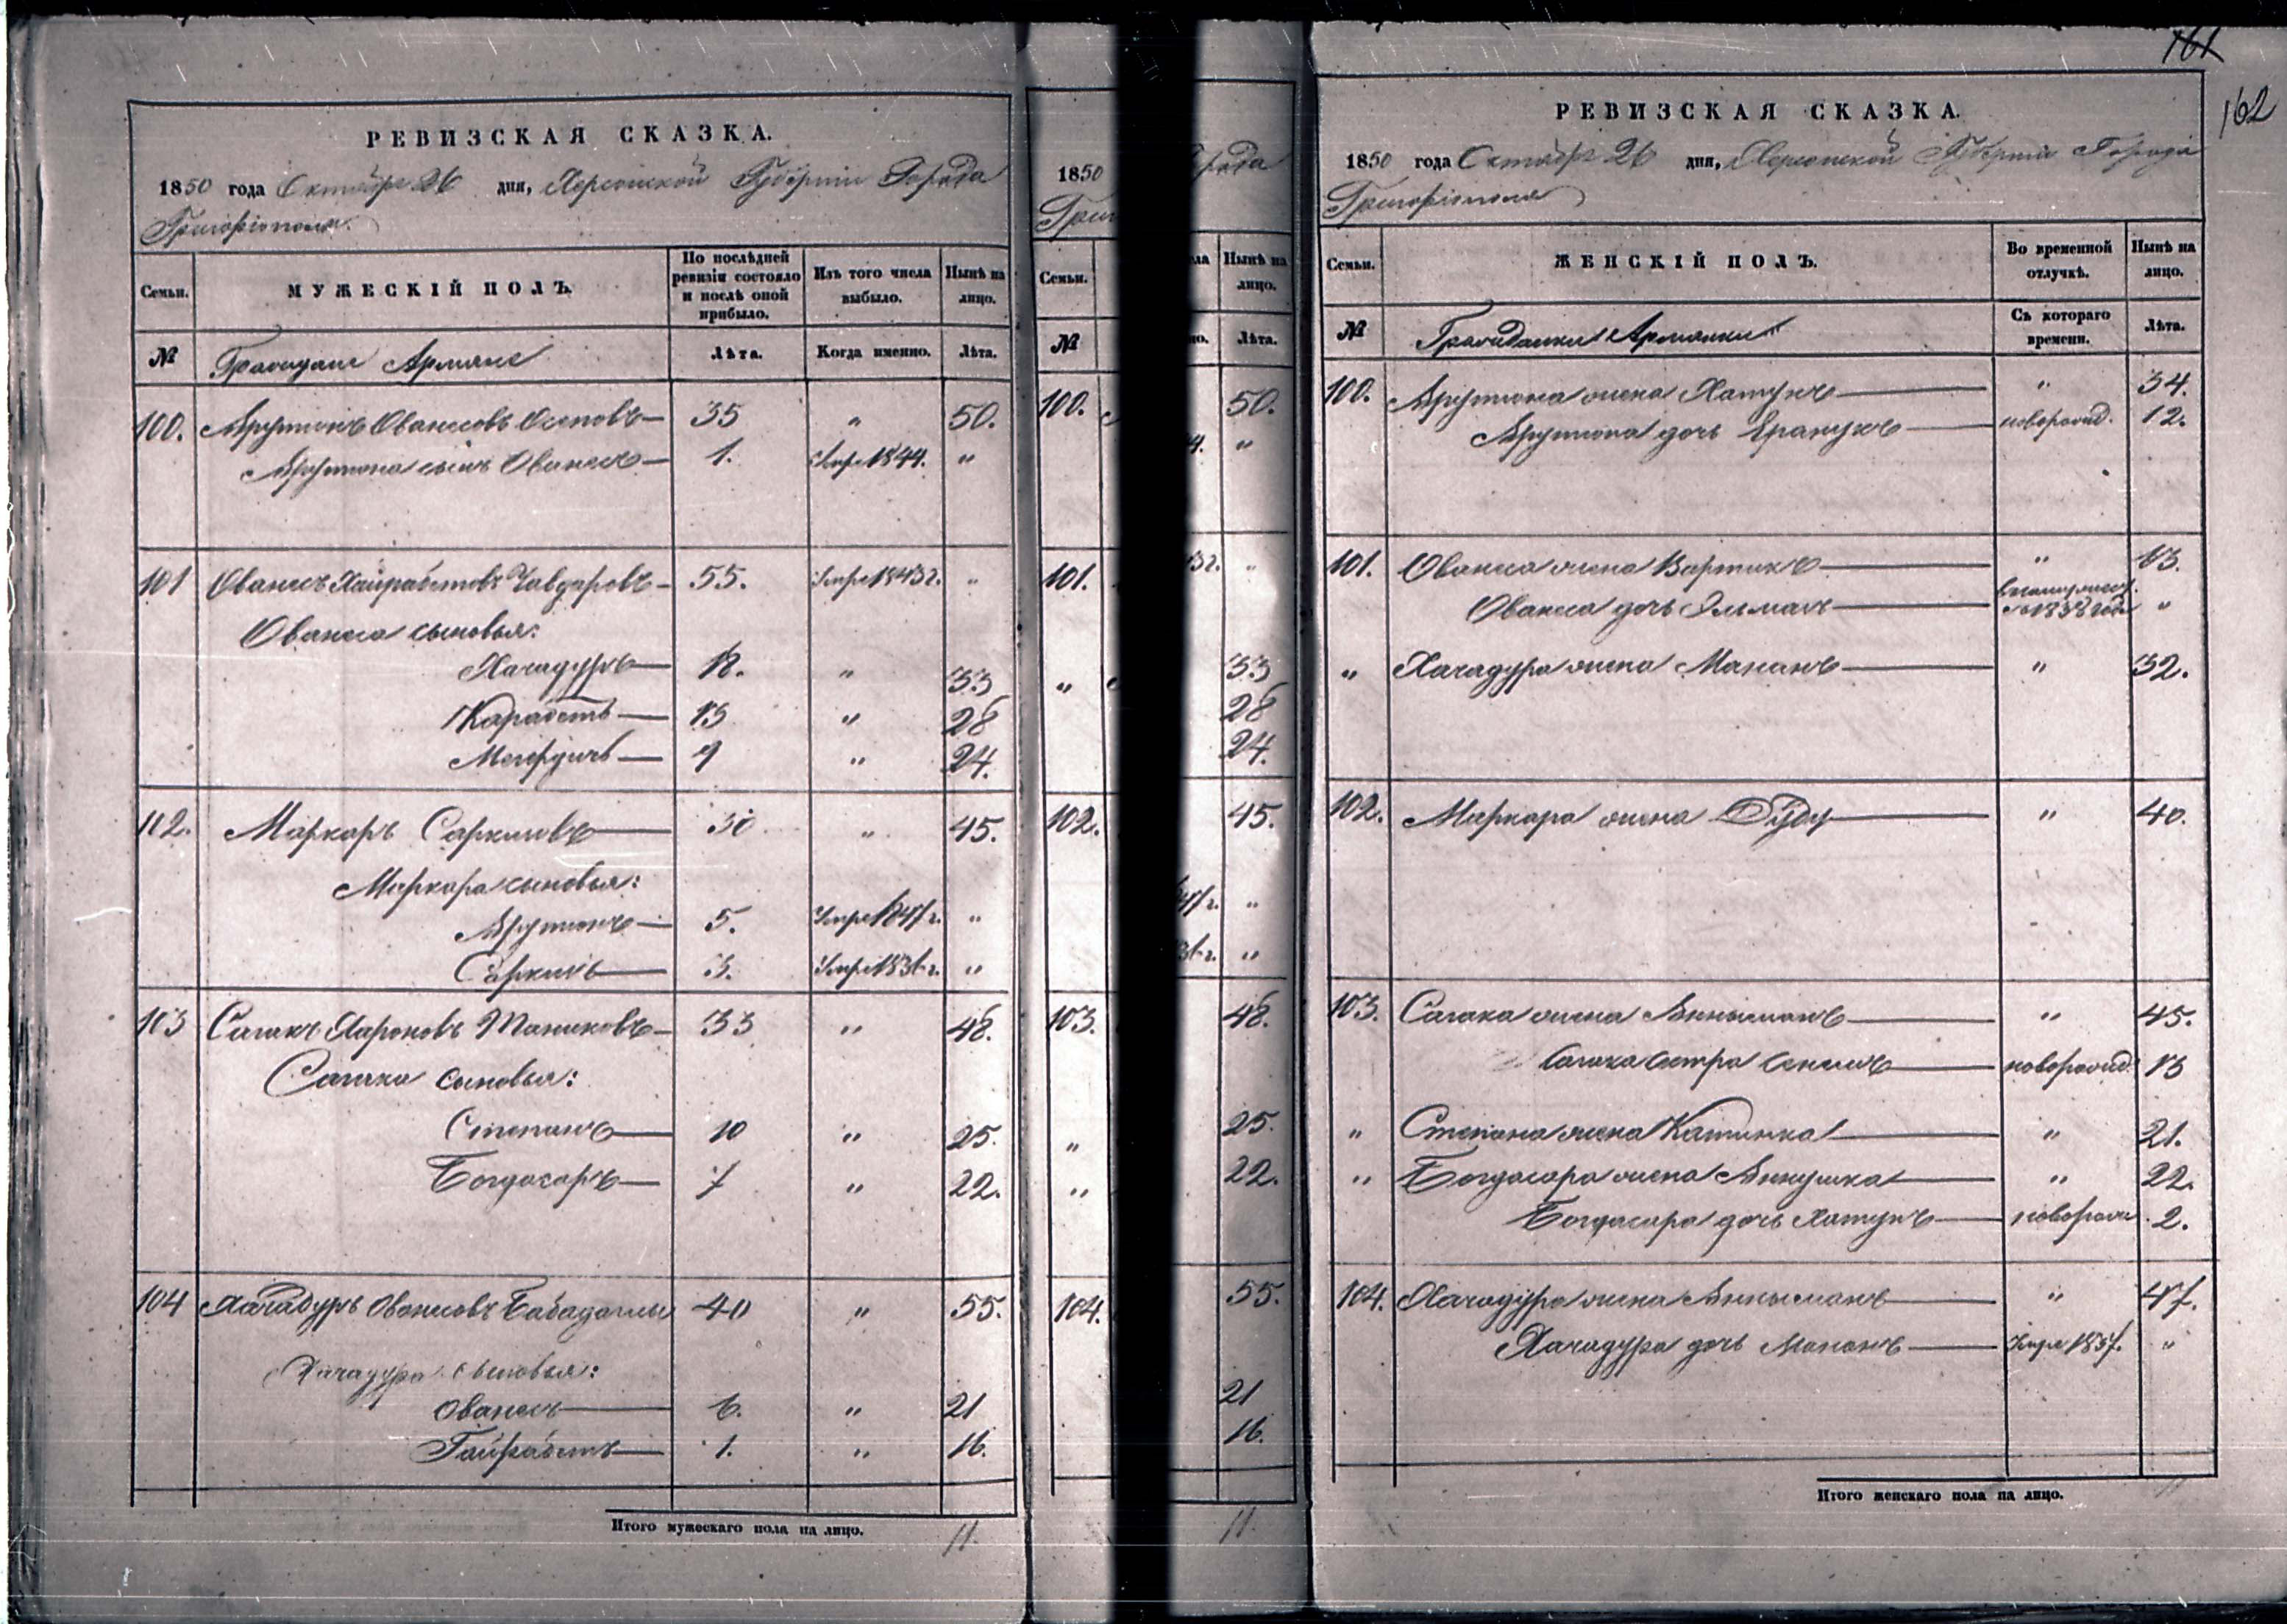 РЕВИЗСКАЯ СКАЗКА.
1850 года Октября 26 дня, Херсонской Губернии Города
Григоріополя.
Семьи. МУЖЕСКІЙ ПОЛЪ. По послѣдней ревизіи состояло и послѣ оной прибыло. Изъ того числа выбыло. Нынѣ на лицо.
№ Граждане Армяне Лѣта. Когда именно. Лѣта.
100. Арутюнъ Ованесовъ Осиповъ 35 " 50.
Арутюна сынъ Ованесъ 1. Умре 1844. "
101 Ованесъ Хайрабетовъ Чавдаровъ 55. Умре 1843 г. "
Ованеса сыновья:
Хачадуръ 18. " 33
Карабетъ 13 " 28
Мегердичъ 9 " 24.
102. Маркаръ Саркисовъ 30 " 45.
Маркара сыновья:
Арутюнъ 5. Умре 1847 г. "
Саркисъ 3. Умре 1836 г. "
103 Сагакъ Хароновъ Манuковъ 33 " 48.
Сагака сыновья:
Степанъ 10 " 25.
Богдасаръ 7 " 22.
104 Хачадуръ Ованесовъ Бабадаглы 40 " 55.
Хачадура сыновья:
Ованесъ 6. " 21
Гайрабетъ 1. " 16.
Итого мужескаго пола на лицо. 11.
1850 рода
Григ
Семьи. ла Нынѣ на лицо.
№ но. Лѣта.
100. 50.
4. "
101. 43 г. "
" 33
28
24.
102. 45.
847 г. "
36 г. "
103. 48.
" 25.
" 22.
104. 55.
21
16.
11.
161
162
РЕВИЗСКАЯ СКАЗКА.
1850 года Октября 26 дня, Херсонской Губерніи Города
Григоріополя
Семьи. ЖЕНСКІЙ ПОЛЪ. Во временной отлучкѣ. Нынѣ на лицо.
№ Гражданки Армянки Съ котораго времени. Лѣта.
100. Арутюна жена Хатунъ " 34.
Арутюна дочь Еранухъ новорожд. 12.
101. Ованеса жена Вартихъ " 63.
Ованеса дочь Эльмасъ съ 1838 года "
" Хачадура жена Мананъ " 32.
102. Маркара жена Дуду " 40.
103. Сагака жена Анысманъ " 45.
Сагака сестра новорожд. 13
" Степана жена Катинка " 21.
" Богдасара жена Аннушка " 22.
Богдасара дочь Хатунъ новорожд. 2.
104. Хачадура жена Анысманъ " 47.
Хачадура дочь Мананъ Умре 1837. "
Итого женскаго пола на лицо. 11